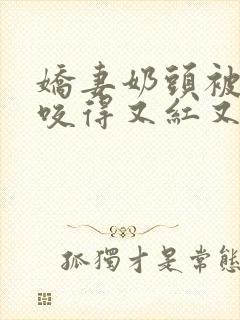 嬌妻奶頭被
咬得又紅又
孤獨才是常態